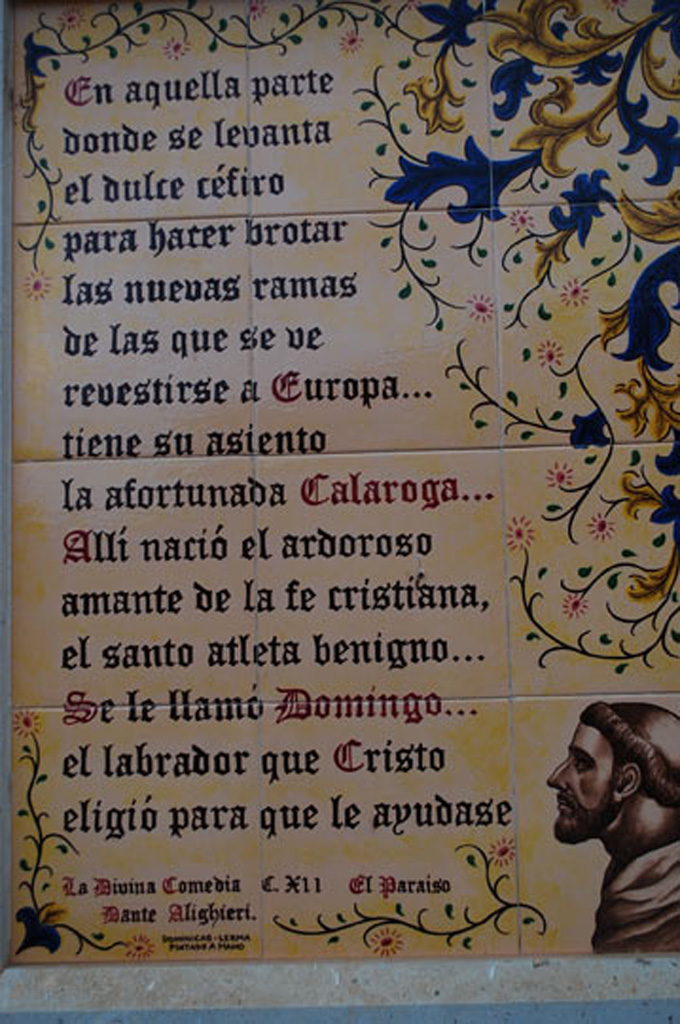 En aquella parte
donde se levanta
el dulce céfiro
para hacer brotar
las nuevas ramas
de las que se ve
revestirse a Europa...
tiene su asiento
la afortunada Calaroga...
Allí nació el ardoroso
amante de la fe cristiana,
el santo atleta benigno...
Se le llamó Domingo...
el labrador que Cristo
eligió para que le ayudase
La Divina Comedia C. XII El Paraiso
Dante Alighieri.
DOMINICAS-LERMA
PINTADO A MANO